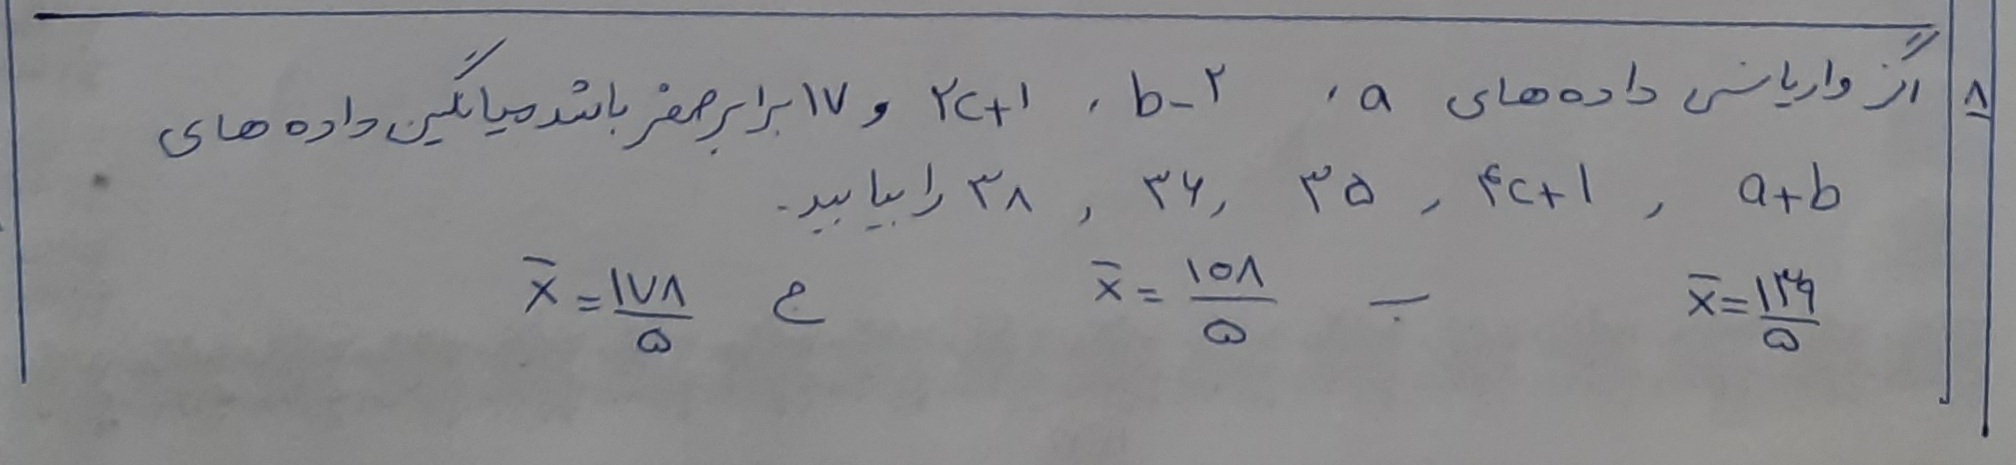 ۸ اگر واریانس داده های a ، b-۲ ، ۲c+۱ و ۱۷ برابر صفر باشد میانگین داده های
a+b , ۴c+۱ , ۳۵ , ۳۶ , ۳۸ را بیابید.
x̄=۱۳۹/۵ ب x̄=۱۵۸/۵ ج x̄=۱۷۸/۵